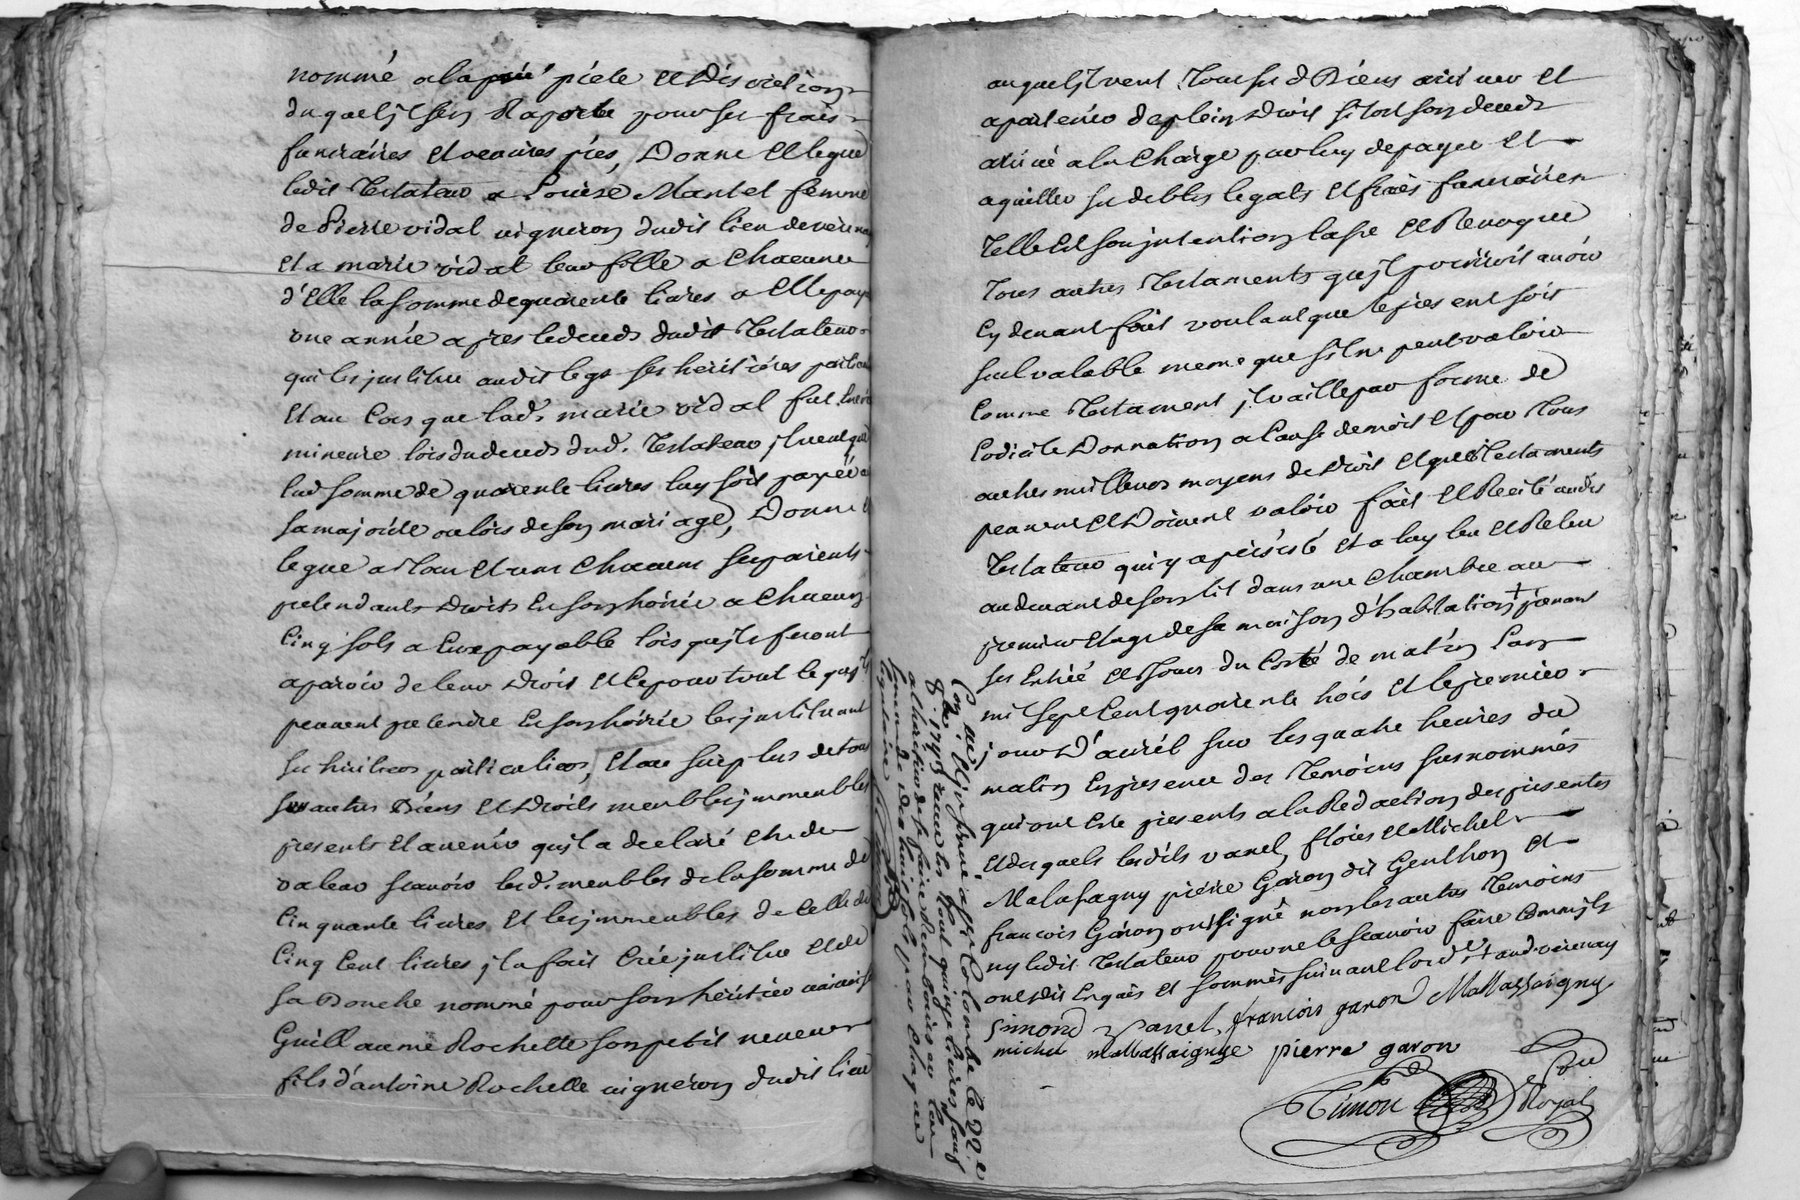 nommé a la piété et discretion
duquel jl sen Raporte pour ses frais
funeraires et oeuvres pies, Donne et legue
ledit Testateur a Louise Mantel femme
de Pierre vidal vigneron dudit lieu de verenay
et a marie vidal leur fille a Chacune
d'Elle la somme de quarente livres a Elle payable
une année apres le deceds dudit Testateur
qui les jnstitue audit legs ses heritieres particulieres
et au Cas que lad. marie vidal fut Encore
mineure lors du deceds dud. Testateur jl veut que
lad somme de quarente livres luy soit payée a
sa majorité ou lors de son mariage, Donne et
legue a tous et uns Chacuns ses parents
pretendants Droits En son hoirie a Chacun
Cinq sols a Eux payable lors qu'jls feront
aparoir de leur Droit et ce pour tout ce qu'jls
peuvent pretendre En son hoirie les jnstituant
ses heritiers particuliers, et au surplus de tous
ses autres Biens et Droits meubles jmmeubles
presents et avenir qu'jl a declaré Etre de
valeur scavoir lesd. meubles de la somme de
Cinquante livres et les jmmeubles de Celle de
Cinq Cent livres jl a fait Créé jnstitue et de
sa Bouche nommé pour son heritier universel
Guillaume Rochette son petit neveu
fils d'antoine Rochette vigneron dudit lieu
auquel jl veut tous ses d Biens arriver et
apartenir de plein Droit sitot son deceds
arrivé a la Charge par luy de payer et
aquitter ses debtes legats et frais funeraires
Telle Est son jntention Casse et Revoque
Tous autres Testaments qu'jl pourroit avoir
Cy devant fait voulant que le present soit
seul valable meme que s'il ne peut valoir
Comme Testament jl vaille par forme de
Codicile Donnation a Cause de mort et par tous
autres meilleurs moyens de Droit et que Testaments
peuvent et Doivent valoir fait et Recité audit
Testateur qui y a persisté et a luy leu et Releu
au devant de son lit dans une Chambre au
premier etage de sa maison d'habitation + prenant
ses Entrée et Jours du Corté de matin L'an
mil sept Cent quarente trois et le premier
jour D'avril sur les quatre heures du
matin En presence des Temoins susnommés
qui ont Esté presents a la Redaction des presentes
et desquels lesdits vanel, flories et Michel
Malassagny pierre Garon dit Genthon et
francois Garon ont signé non les autres Temoins
ny ledit Testateur pour ne le scavoir faire Comme jls
ont dit Enquis et sommés suivant l'ord.ce + aud. verenay
Simond vanel, francois garon Mallassaigny
michel mallassaigny pierre garon
Simon no.re Royal
Con.lé et jnsinué a S.te Colombe le 22 e
8.bre 1743 receu les trois quinze livres sauf
a l'heritier de se faire Rembourser au leur
somme de Deux livres huit sols par chaque
legataire